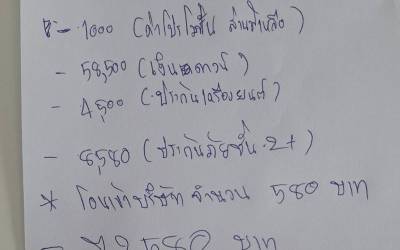 - 1000 (ค่าโปรโมชั่น ส่วนที่เหลือ)
- 58,500 (เงินดาวน์)
- 4,500 (ประกันเครื่องยนต์)
- 8,580 (ประกันภัยชั้น 2+)
* โอนเข้าบริษัท จำนวน 580 บาท
2,580 บาท